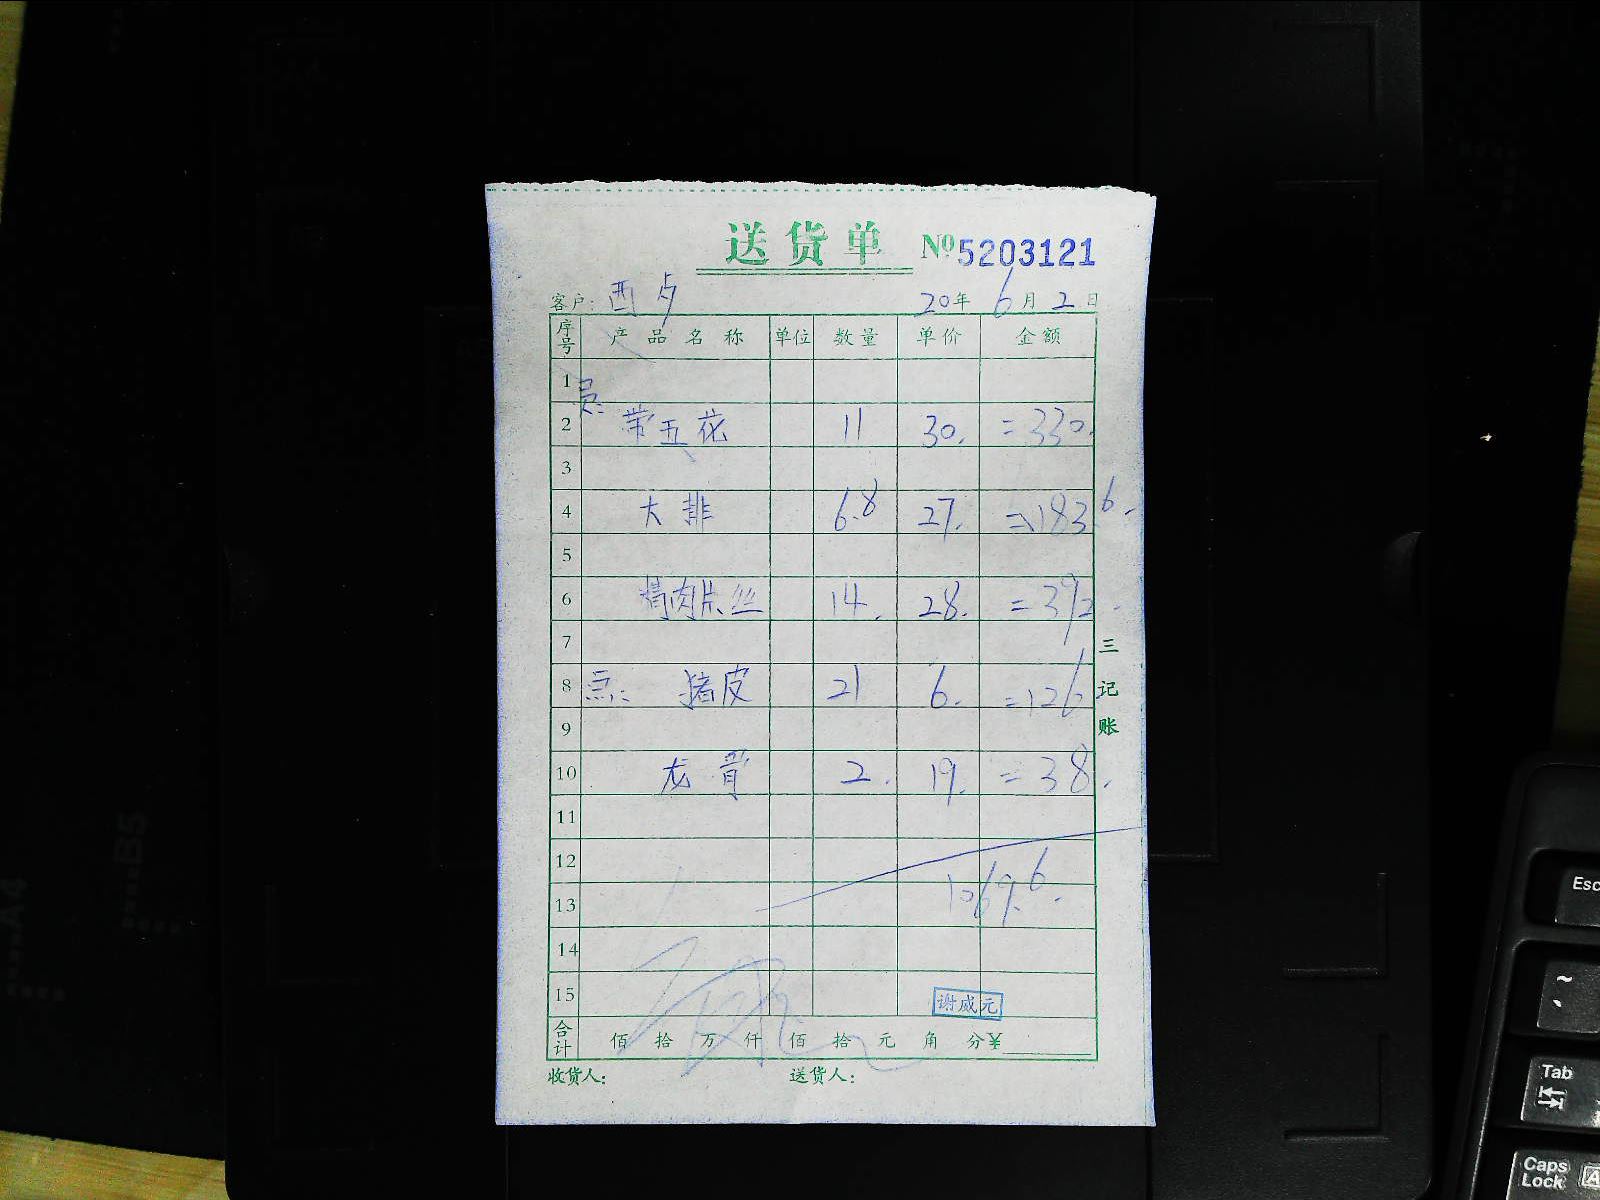 送货单 Nº5203121
客户: 西 20年 6月 2日
序号 产品名称 单位 数量 单价 金额
1
2 员: 带五花 11 30. =330.
3
4 大排 6.8 27. =183.6.
5
6 精肉片丝 14. 28. =392.
7
8 点: 猪皮 21 6. =126
9
10 龙骨 2. 19. =38.
11
12
13 1069.6.
14
15 谢咸元
合计 佰 拾 万 仟 佰 拾 元 角 分¥
收货人: 送货人:
三记账
A4
B5
Esc
~
Tab
Caps Lock
A